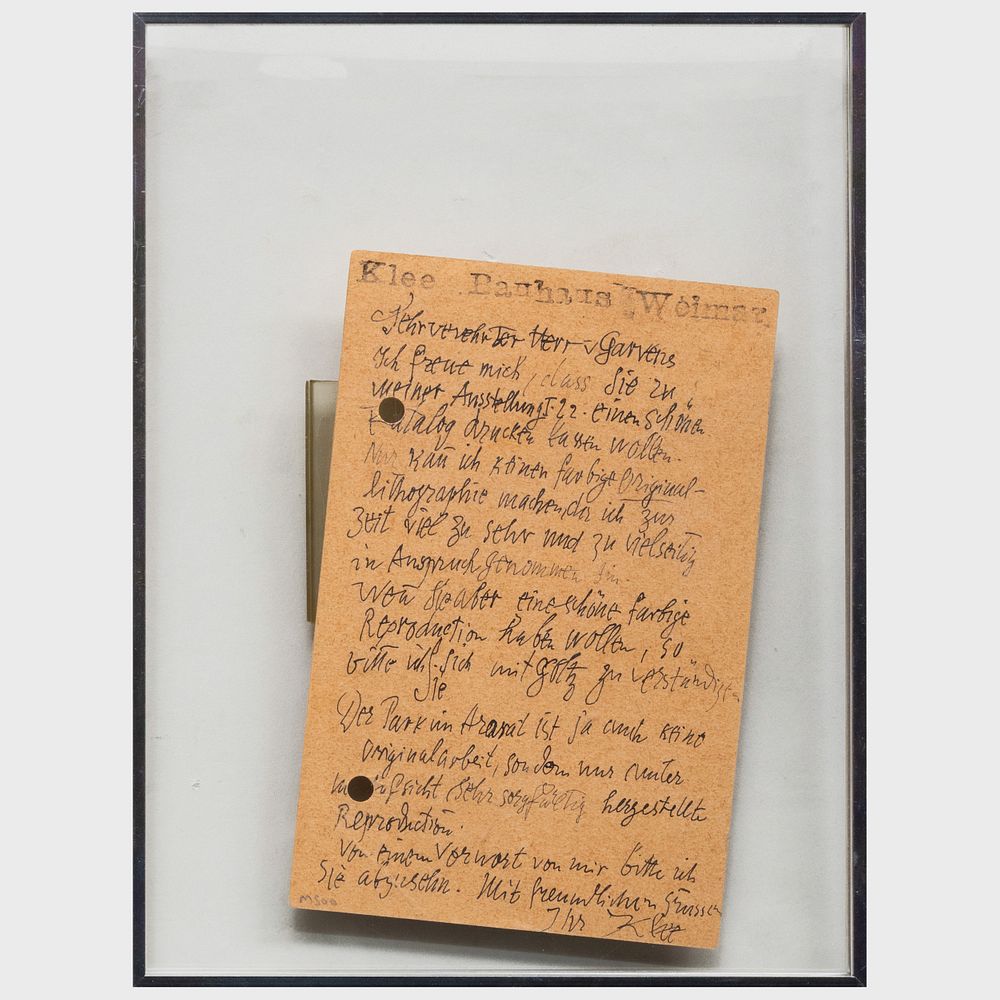 Klee Bauhaus Weimar
Sehr verehrter Herr v Garvens
Ich freue mich, dass Sie zu
meiner Ausstellung I. 22. einen schönen
Katalog drucken lassen wollen.
Nur kañ ich keinen farbige Original-
lithographie machen, da ich zur
Zeit viel zu sehr und zu vielseitig
in Anspruch genommen bin.
Weñ Sie aber eine schöne farbige
Reproduction haben wollen, so
bitte ich sich mit Goltz zu verständigen
Sie
Der Park im Ararat ist ja auch keine
Originalarbeit, sondern nur unter
Aufsicht sehr sorgfältig hergestellte
Reproduction.
Von einem Vorwort von mir bitte ich
Sie abzusehn. Mit freundlichen Grüssen
Ihr Klee
M500